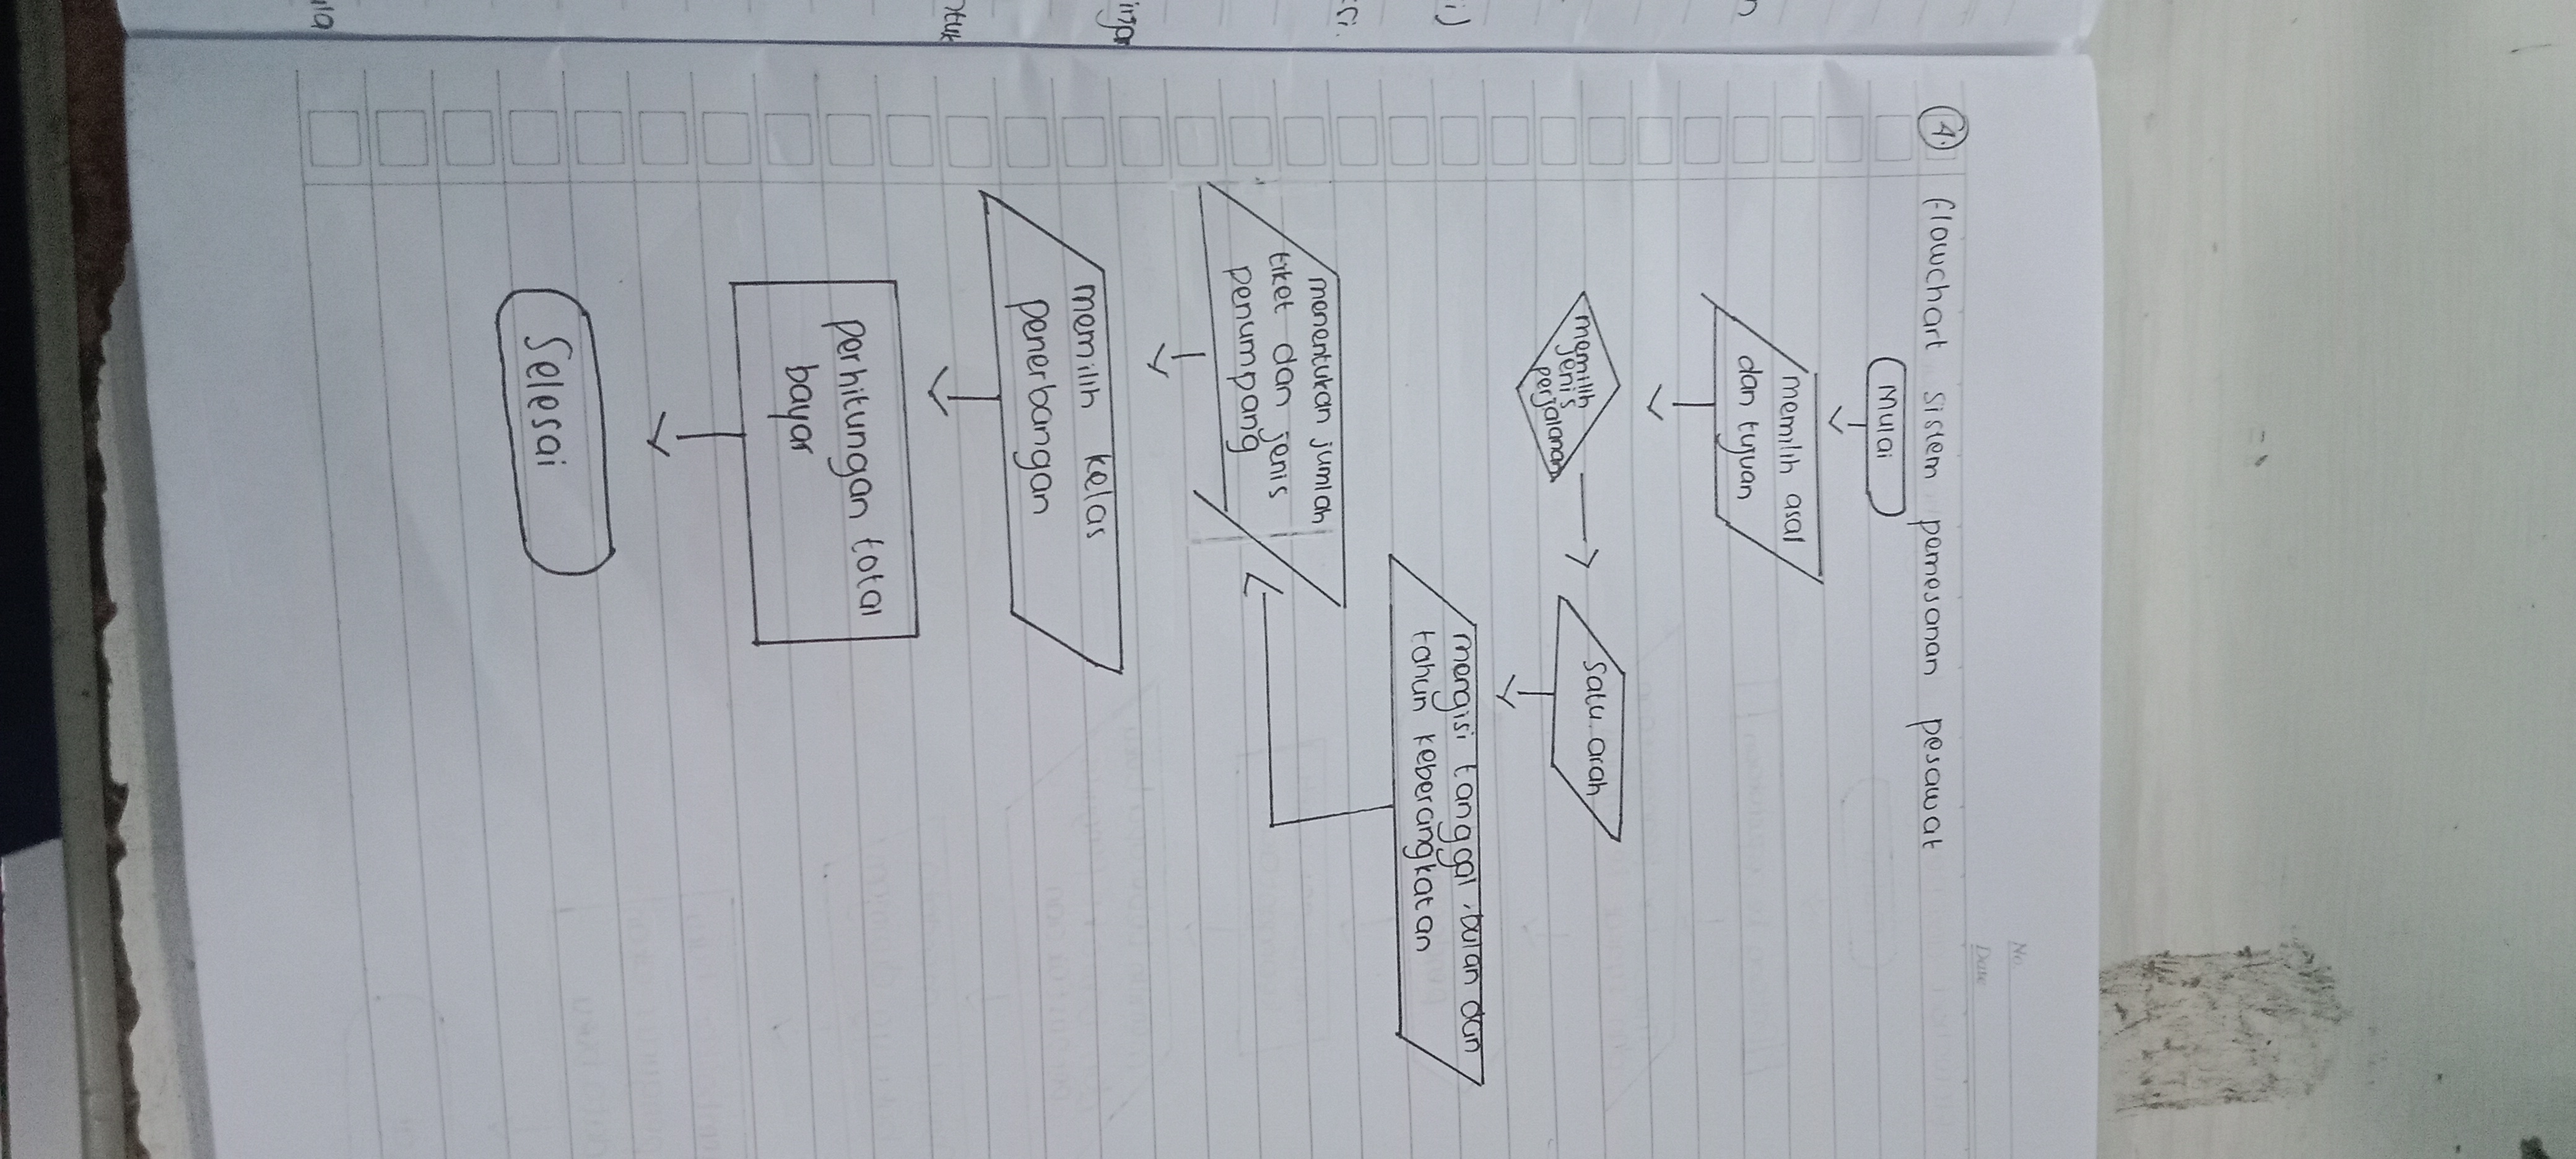 No.
Date
4. flowchart sistem pemesanan pesawat
Mulai
memilih asal
dan tujuan
memilih
jenis
perjalanan
satu arah
mengisi tanggal, bulan dan
tahun keberangkatan
menentukan jumlah
tiket dan jenis
penumpang
memilih kelas
penerbangan
perhitungan total
bayar
Selesai